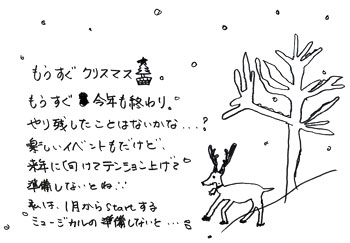 もうすぐ クリスマス
もうすぐ 今年も終わり。
やり残したことはないかな...?
楽しいイベントもだけど、
来年に向けてテンション上げて
準備しないとね∵
私は、1月からstartする
ミュージカルの準備しないと...